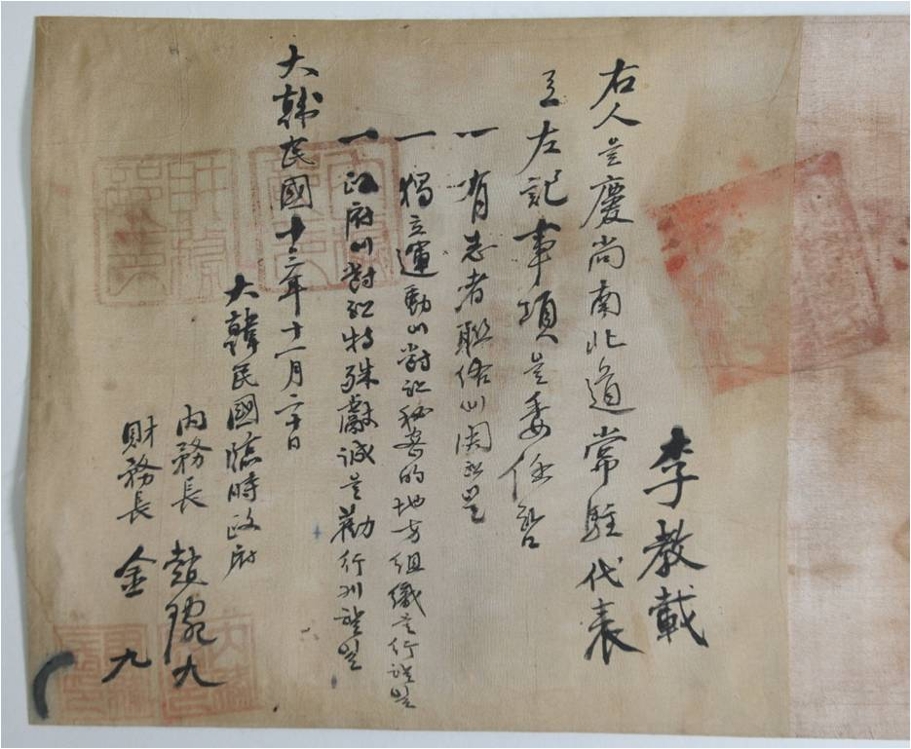 李教載
右人을慶尙南北道常駐代表
로左記事項을委任함
一 有志者聯絡에関한일
一 獨立運動에對한秘密的地方組織을行할일
一 政府에對한特殊獻誠을勸行케할일
大韓民國十三年十一月二十日
大韓民國臨時政府
內務長 趙琬九
財務長 金九